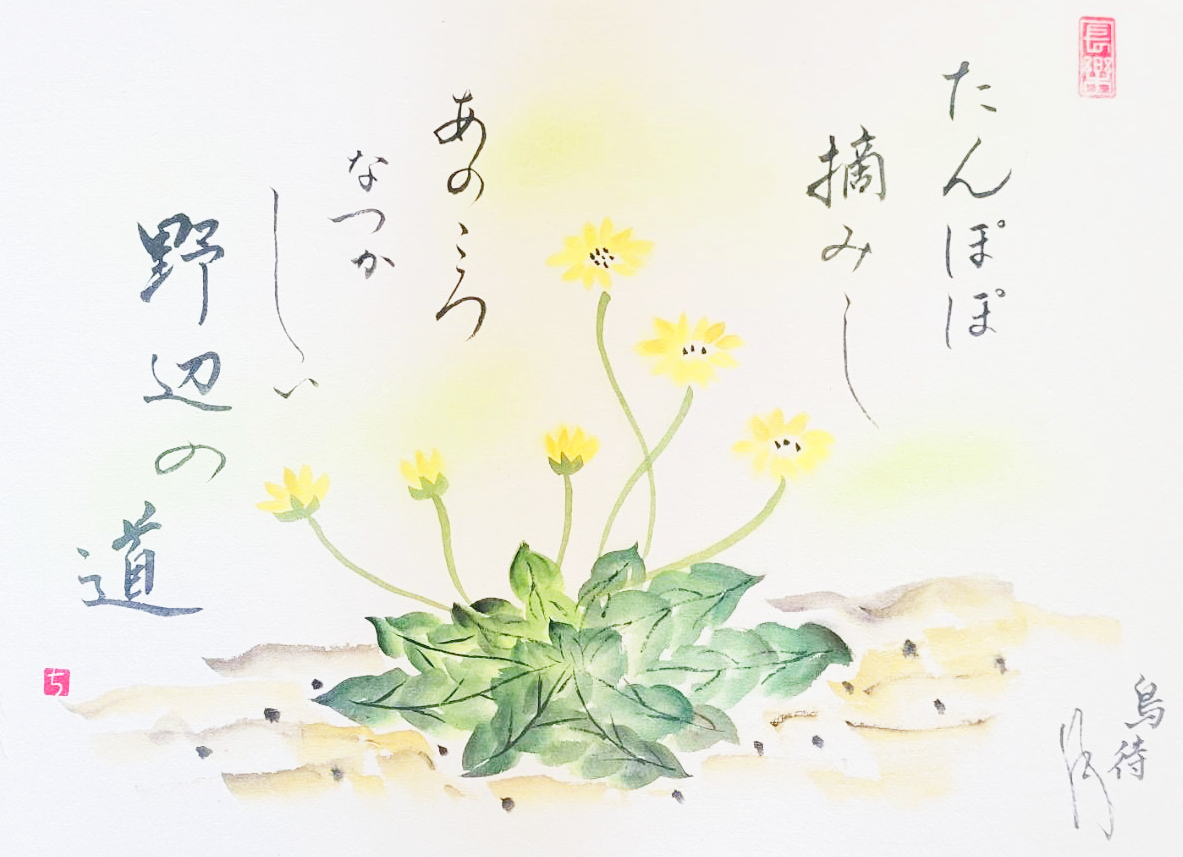 長樂
たんぽぽ
摘みし
あのころ
なつか
しい
野辺の道
鳥待
月
ち